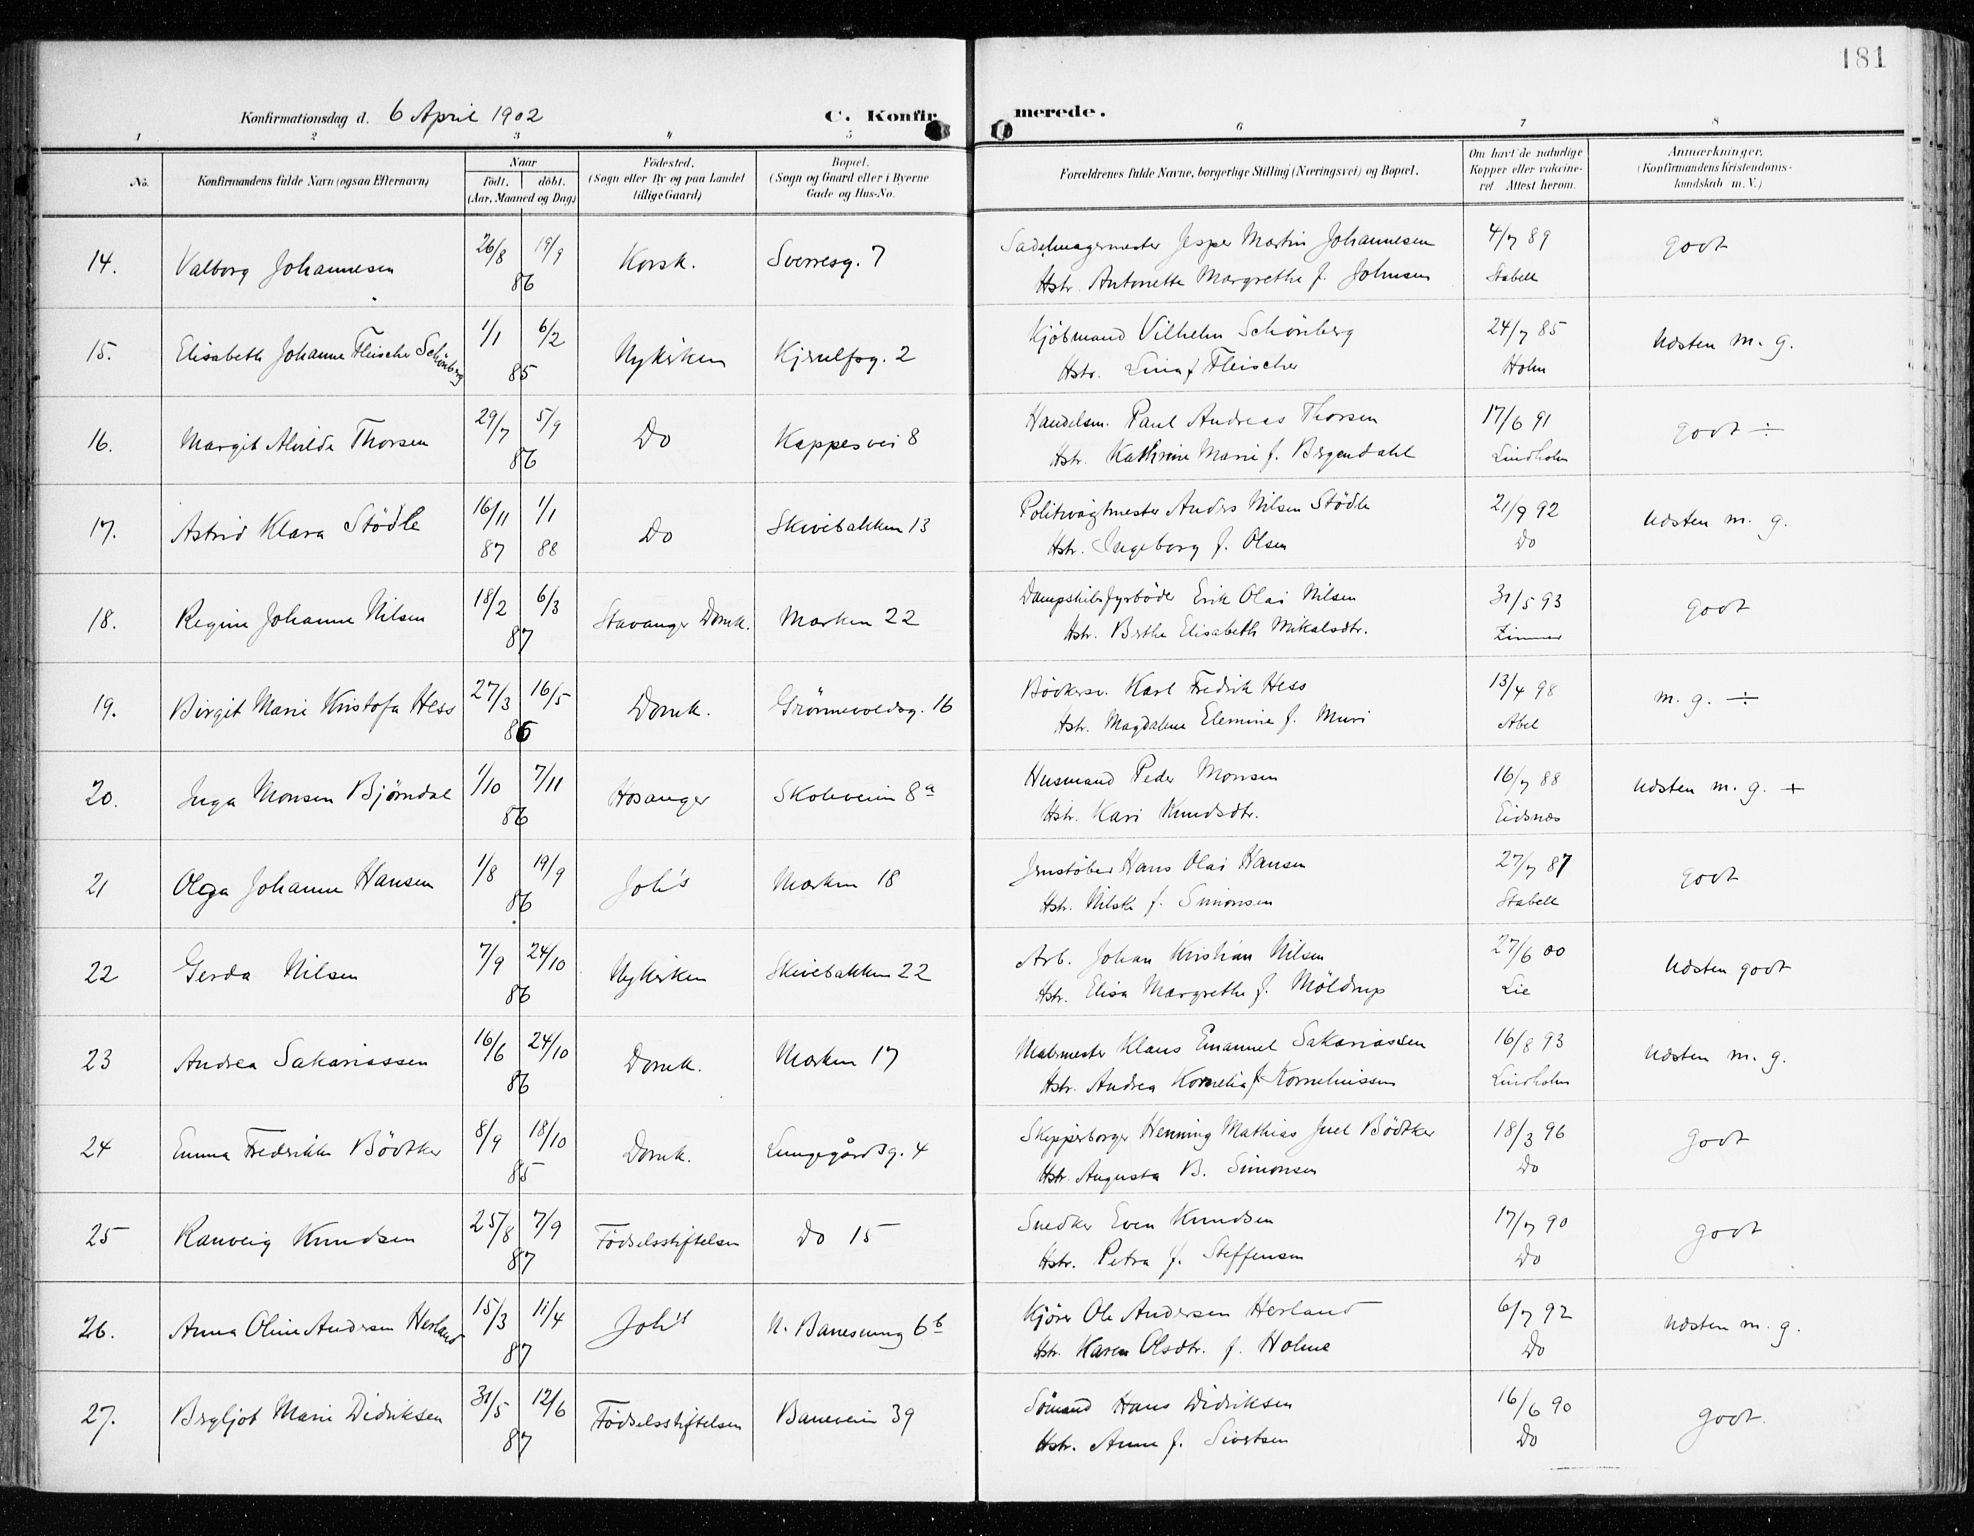 181
Konfirmationsdag d. 6 April 1902
C. Konfirmerede.
1 2 3 4 5 6 7 8
No.
Konfirmandens fulde Navn (ogsaa Efternavn)
Naar
födt. döbt.
(Aar, Maaned og Dag)
Födested.
(Sogn eller By og paa Landet
tillige Gaard)
Bopæl.
(Sogn og Gaard eller i Byerne
Gade og Hus-No.
Forældrenes fulde Navne, borgerlige Stilling (Næringsvei) og Bopæl.
Om havt de naturlige
Kopper eller vakcine-
ret Attest herom.
Anmærkninger.
(Konfirmandens Kristendoms-
kundskab m. V.)
14. Valborg Johannesen 26/8 19/9 86 Korsk. Sverresg. 7
Sadelmagermester Jesper Martin Johannesen 4/7 89 godt
Hstr. Antonette Margrethe f. Johnsen Stabell
15. Elisabeth Johanne Fleischer Schönberg 1/1 6/2 85 Nykirken Kjerulfsg. 2
Kjöbmand Vilhelm Schönberg 24/7 85 Næsten m. g.
Hstr. Lina f Fleischer Holm
16. Margit Alvilde Thorsen 29/7 5/9 86 Do Kappesvei 8
Handelsm. Paul Andreas Thorsen 17/6 91 godt ÷
Hstr. Kathrine Marie f. Bergendahl Lindholm
17. Astrid Klara Stödle 16/11 87 1/1 88 Do Skivebakken 13
Politivagtmester Anders Nilsen Stödle 21/9 92 Næsten m. g.
Hstr. Ingeborg f. Olsen Do
18. Regine Johanne Nilsen 18/2 6/3 87 Stavanger Domk. Marken 22
Dampskibsfyrböder Erik Olai Nilsen 31/5 93 godt
Hstr. Berthe Elisabeth Mikalsdtr. Zimmer
19. Birgit Marie Kristofa Hess 27/3 16/5 86 Domk. Grönnevoldsg. 16
Bödkersv. Karl Fredrik Hess 13/4 98 m. g. ÷
Hstr. Magdalene Elemine f. Muri Abel
20. Inga Monsen Björndal 1/10 7/11 86 Hosanger Skoleveien 8a
Husmand Peder Monsen 16/7 88 Næsten m. g. +
Hstr. Kari Knudsdtr. Eidsnæs
21 Olga Johanne Hansen 1/8 19/9 86 Joh's Marken 18
Jernstöber Hans Olai Hansen 27/7 87 godt
Hstr. Nilske f. Simonsen Stabell
22 Gerda Nilsen 7/9 24/10 86 Nykirken Skivebakken 22
Arb. Johan Kristian Nilsen 27/6 00 Næsten godt
Hstr. Elisa Margrethe f. Möldrup Lie
23 Andrea Sakariassen 16/6 24/10 86 Domk. Marken 17
Malermester Klaus Emanuel Sakariassen 16/8 93 Næsten m. g.
Hstr. Andrea Kornelia f. Korneliussen Lindholm
24 Emma Fredrikke Bödtker 8/9 18/10 85 Domk. Lungegårdsg. 4
Skipperborger Henning Mathias Juel Bödtker 18/3 96 godt
Hstr. Augusta B. Simonsen Do
25 Ranveig Knudsen 25/8 7/9 87 Födselsstiftelsen Do 15
Snedker Even Knudsen 17/7 90 godt
Hstr. Petra f. Steffensen Do
26. Anna Oline Andersen Herland 15/3 11/4 87 Joh's N. Banesmug 6b
Kjörer Ole Andersen Herland 6/7 92 Næsten m. g.
Hstr. Karen Olsdtr. f. Holme Do
27. Bergljot Marie Didriksen 31/5 12/6 87 Födselsstiftelsen Baneveien 39
Sömand Hans Didriksen 16/6 90 godt.
Hstr. Anne f. Sivertsen Do